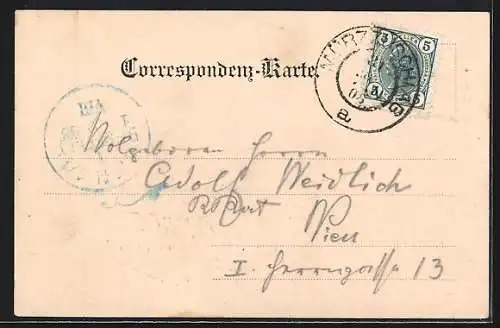 Correspondenz-Karte.
MÜRZZUSCHLAG
a
5 5
Wolgeboren Herrn
Adolf Weidlich
Wien
I. Herrengasse 13